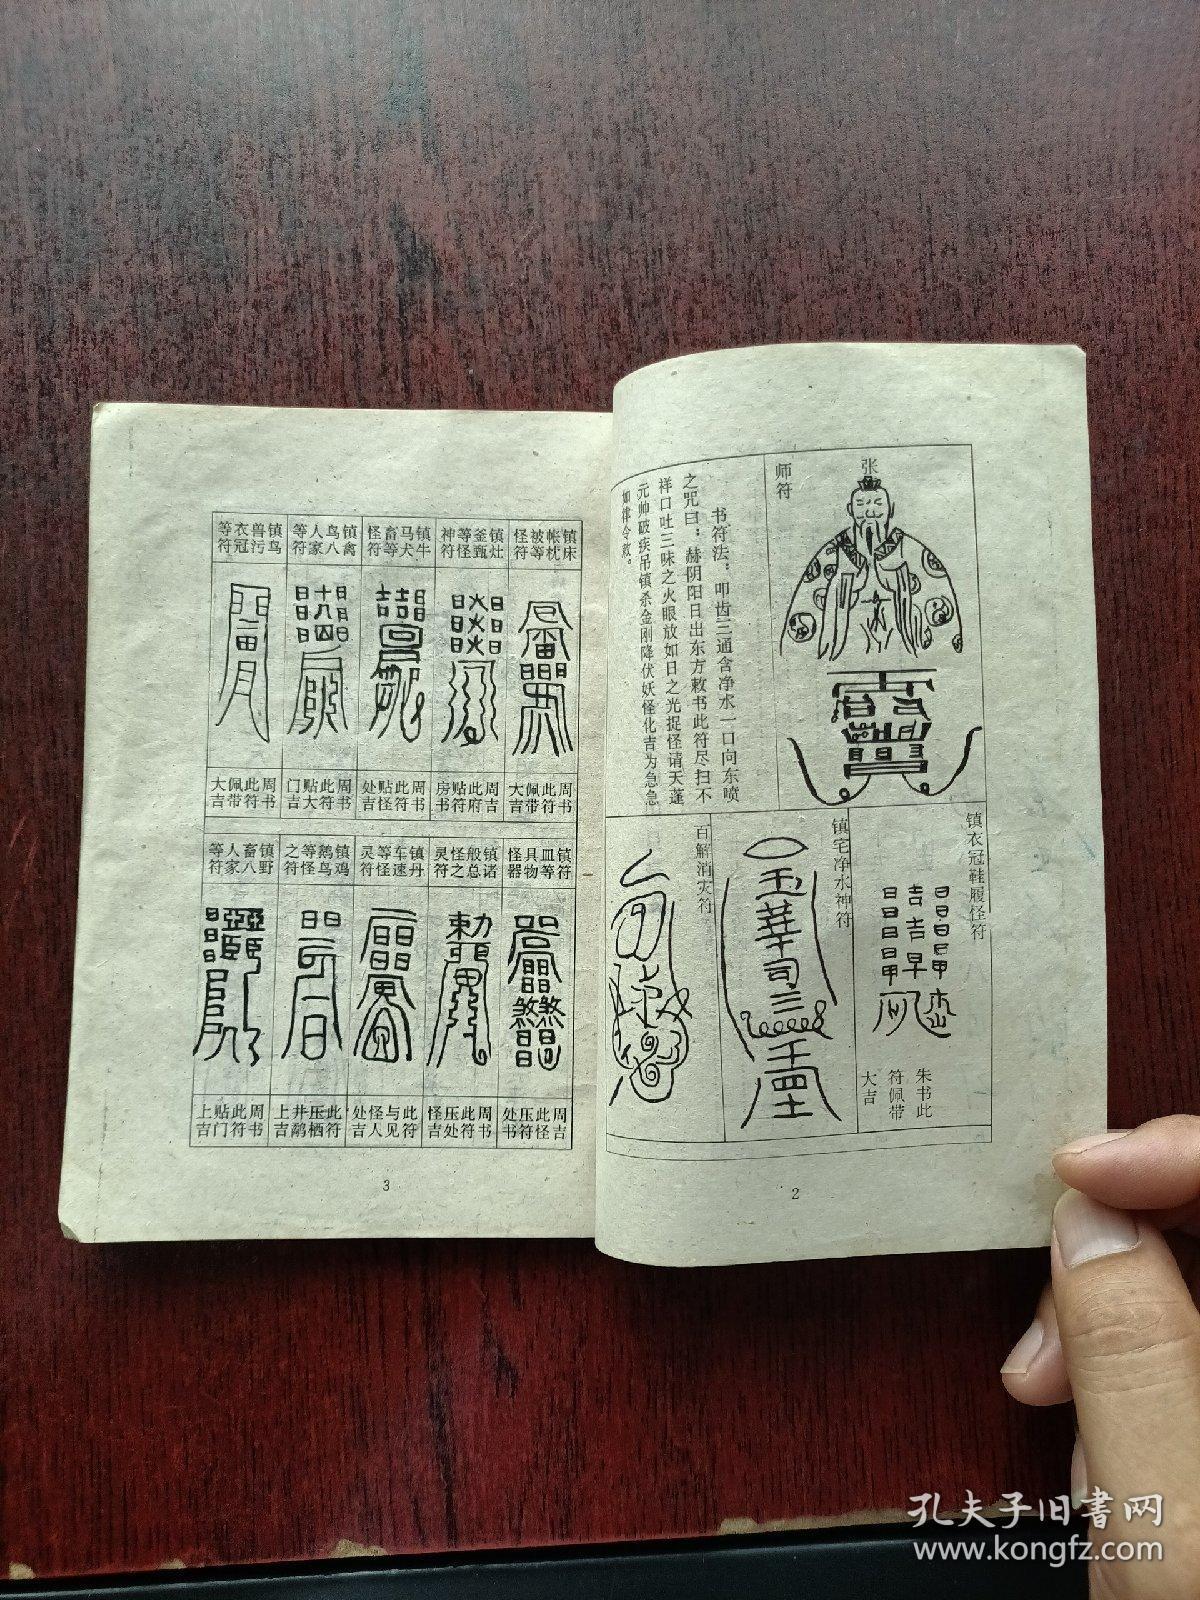 张
师符
书符法：叩齿三通含净水一口向东喷
之咒曰：赫阴阳日出东方敕书此符尽扫不
祥口吐三昧之火眼放如日之光捉怪请天蓬
元帅破疾吊镇杀金刚降伏妖怪化吉为急急
如律令敕。
镇衣冠鞋履怪符
朱书此
符佩带
大吉
镇宅净水神符
百解消灾符
2
镇床帐枕被等怪符
镇灶釜甑等怪神符
镇牛马犬畜等怪符
镇禽鸟八人家等符
镇鸟兽污衣冠等符
周书此符佩带大吉
周吉此府贴符房书
周书此符贴怪处吉
周书此符贴大门吉
周书此符佩带大吉
镇符皿等具物怪器
镇诸般总怪之灵符
镇丹车速等怪灵符
镇鸡鹅鸟等怪之符
镇野畜八人家等符
周吉此怪压符处书
周书此符压处怪吉
此符与见怪人处吉
此符压栖井上吉
周书此符贴门上吉
3
孔夫子旧书网
www.kongfz.com